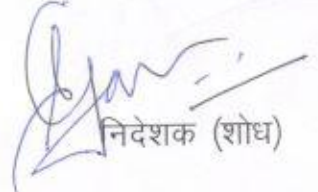 निदेशक (शोध)